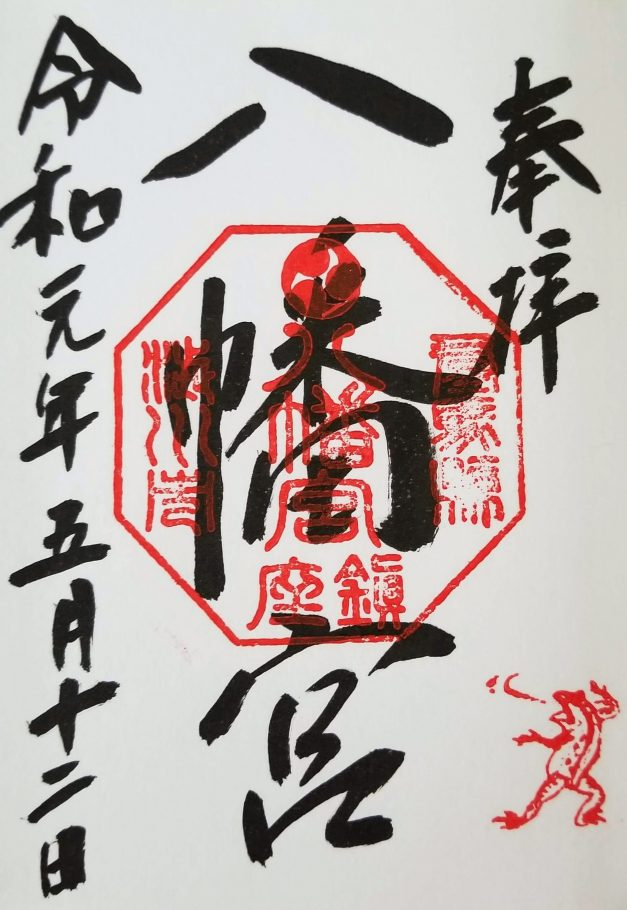 奉拝
八幡宮
八幡宮
鎮座
令和元年五月十二日